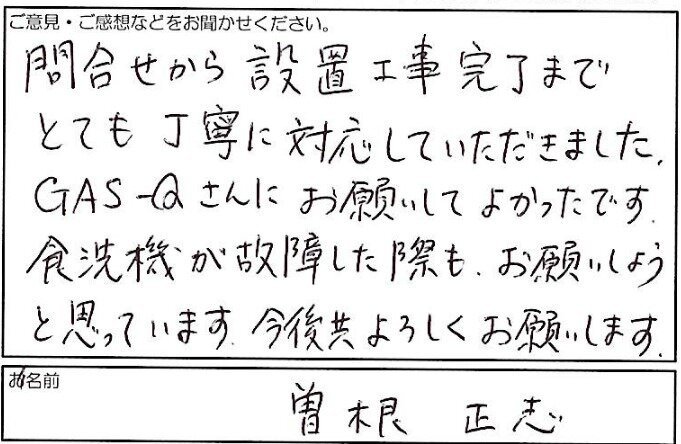 ご意見・ご感想などをお聞かせください。
問合せから設置工事完了まで
とても丁寧に対応していただきました。
GAS-Qさんにお願いしてよかったです。
食洗機が故障した際も、お願いしよう
と思っています。今後共よろしくお願いします。
お名前
曽根 正志